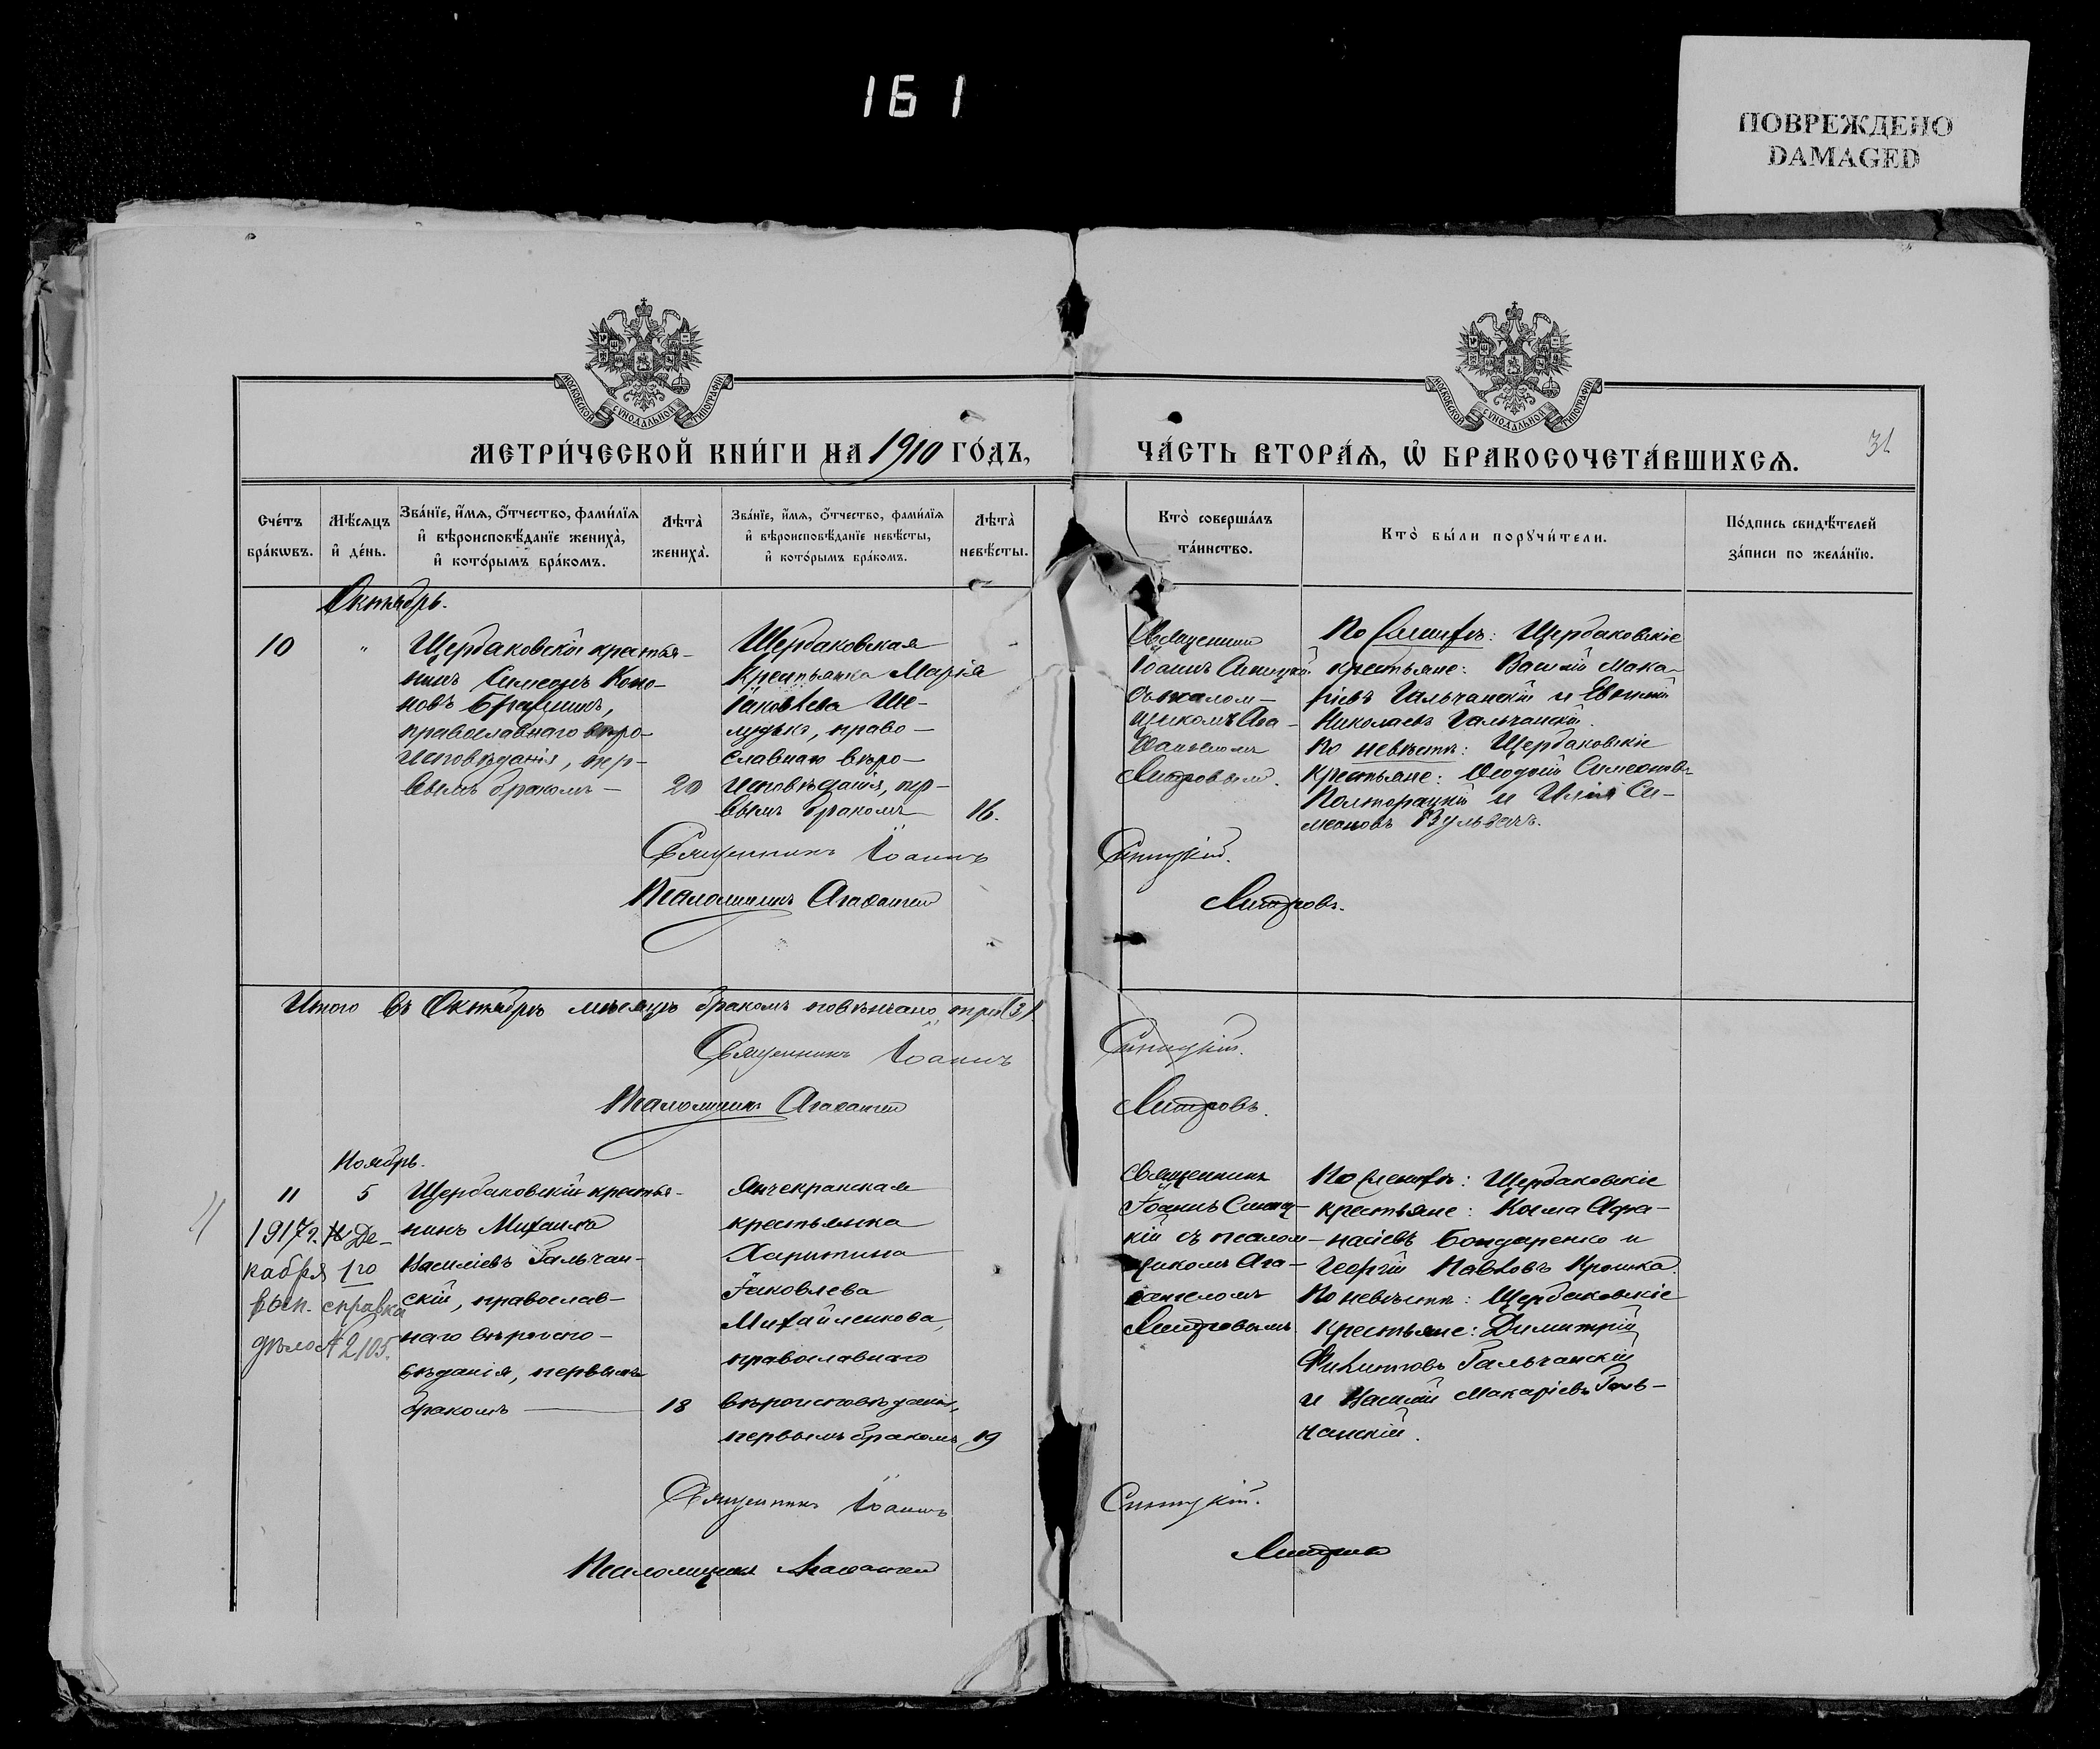 161
ПОВРЕЖДЕНО
DAMAGED
МОСКОВСКОЙ СУНОДАЛЬНОЙ ТИПОГРАФІИ
МОСКОВСКОЙ СУНОДАЛЬНОЙ ТИПОГРАФІИ
МЕТРИ́ЧЕСКОЙ КНИ́ГИ НА 1910 ГО́ДЪ,
ЧА́СТЬ ВТОРА́Ѧ, Ѡ҆ БРАКОСОЧЕТА́ВШИХСѦ.
31
Сче́тъ
бра́кѡвъ.
Мѣ́сѧцъ
и҆ де́нь.
Зва́нїе, и҆́мѧ, ѻ҆́тчество, фами́лїѧ
и҆ вѣроисповѣ́данїе жениха̀,
и҆ кото́рымъ бра́комъ.
Лѣта̀
жениха̀.
Зва́нїе, и҆́мѧ, ѻ҆́тчество, фами́лїѧ
и҆ вѣроисповѣ́данїе невѣ́сты,
и҆ кото́рымъ бра́комъ.
Лѣта̀
невѣ́сты.
Кто̀ соверша́лъ
та́инство.
Кто̀ бы́ли порꙋчи́тели.
По́дпись свидѣ́телей
за́писи по жела́нїю.
Октябрь.
10
"
Щербаковскій крестья-
нинъ Симеонъ Коно-
новъ
православнаго вѣро-
исповѣданія, пер-
вымъ бракомъ —
20
Щербаковская
Крестьянка Марія
Іаковлева Ше-
лудько, право-
славнаго вѣро-
исповѣданія, пер-
вымъ бракомъ
16.
Священникъ
Іоаннъ Синицкій
съ псалом-
щикомъ Ага-
ѳангеломъ
Дмитровымъ.
По женихѣ: Щербаковскіе
крестьяне: Василій Мака-
ріевъ Гальчанскій и Евѳимій
Николаевъ Гальчанскій.
По невѣстѣ: Щербаковскіе
Крестьяне: Ѳеодосій Симеоновъ
Полторацкій и Илія Си-
меоновъ
Священникъ Іоаннъ
Синицкій.
Псаломщикъ Агаѳангелъ
Дмитровъ.
Итого въ Октябрѣ мѣсяцѣ бракомъ повѣнчано три (3).
Священникъ Іоаннъ
Синицкій.
Псаломщикъ Агаѳангелъ
Дмитровъ.
Ноябрь.
11
5
1917г. Де-
кабря 1го
вып. справка
дѣло № 2105.
Щербаковскій крестья-
нинъ Михаилъ
Василіевъ Гальчан-
скій, православ-
наго вѣроиспо-
вѣданія, первымъ
бракомъ —
18
Янчекракская
крестьянка
Харитина
Іаковлева
Михайленкова,
православнаго
вѣроисповѣданія,
первымъ бракомъ
19
Священникъ
Іоаннъ Синиц-
кій съ псалом-
щикомъ Ага-
ѳангеломъ
Дмитровымъ.
По женихѣ: Щербаковскіе
крестьяне: Косма Аѳа-
насіевъ Бондаренко и
Георгій Павловъ Крошка.
По невѣстѣ: Щербаковскіе
Крестьяне: Димитрій
Филипповъ Гальчанскій
и Василій Макаріевъ Галь-
чанскій.
Священникъ Іоаннъ
Синицкій.
Псаломщикъ Агаѳангелъ
Дмитровъ